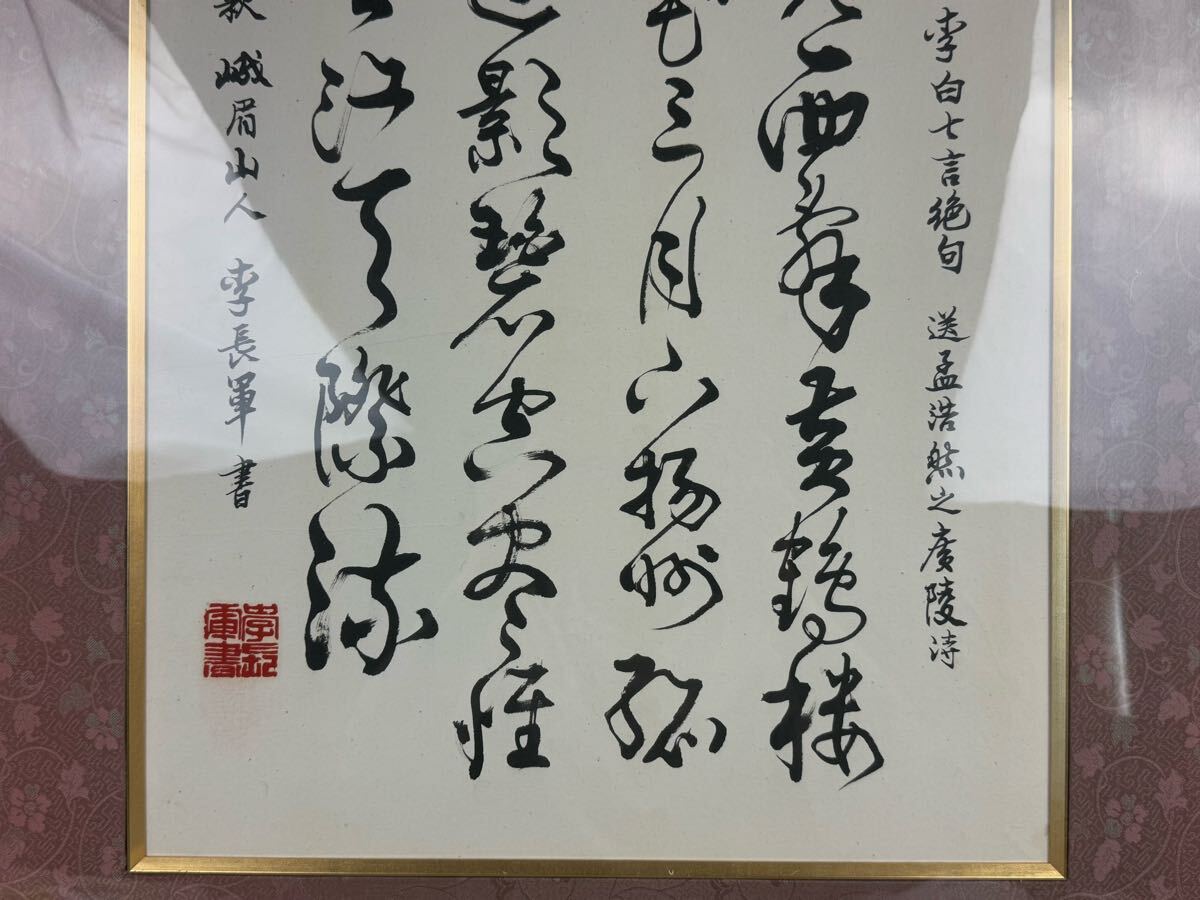 李白七言絶句 送孟浩然之廣陵詩
人西辭黄鶴樓
花三月下揚州孤
遠影碧空盡惟
江天際流
秋 峨眉山人 李長軍 書
李長軍書